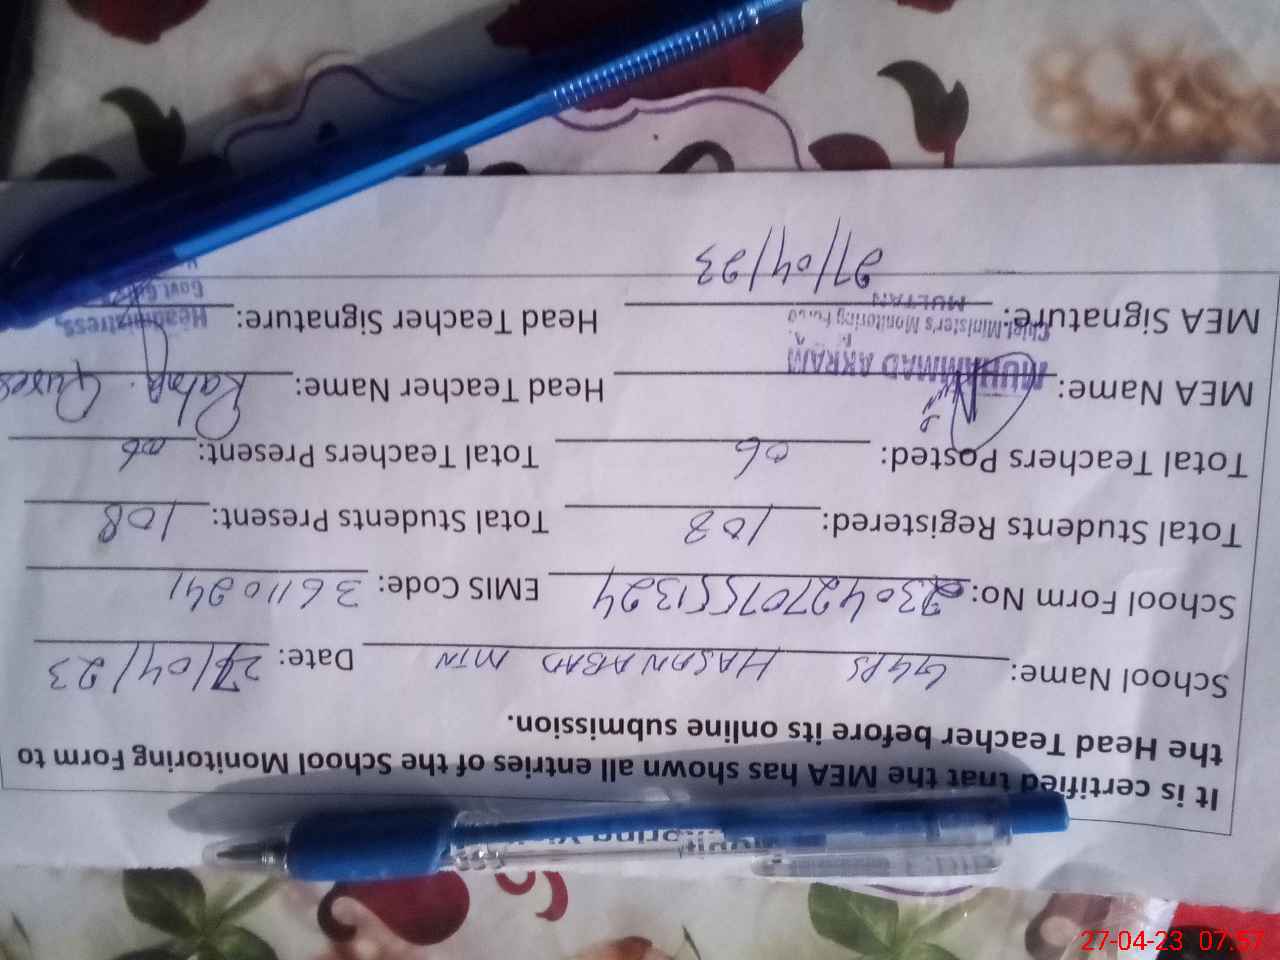 It is certified that the MEA has shown all entries of the School Monitoring Form to
the Head Teacher before its online submission.
School Name: GGPS HASAN ABAD MTN Date: 27/04/23
School Form No: 23042707551324 EMIS Code: 36110241
Total Students Registered: 108 Total Students Present: 108
Total Teachers Posted: 06 Total Teachers Present: 06
MEA Name: MUHAMMAD AKRAM Head Teacher Name:
Chief Minister's Monitoring
MEA Signature: MULTAN Head Teacher Signature: Headmistress,
Govt
27/04/23
27-04-23 07:57